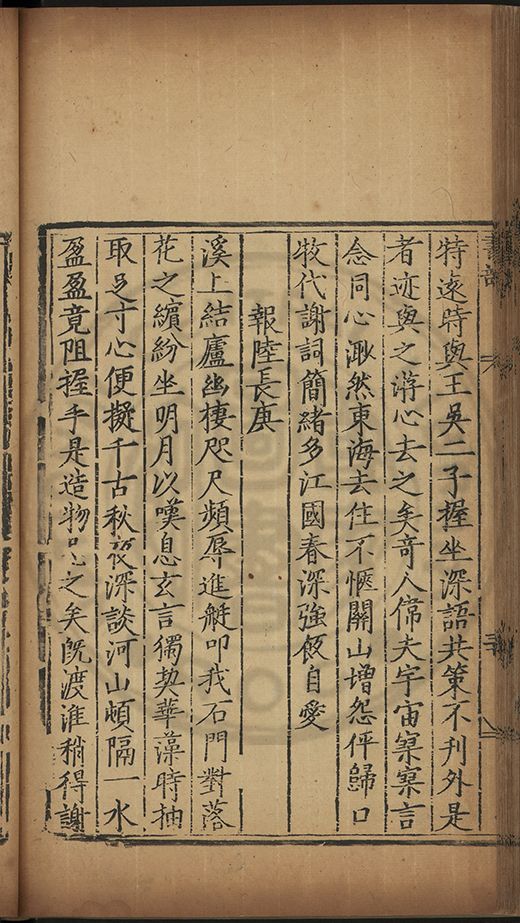 特遠時與王吳二子握坐深語共策不刋外是
者迹與之游心去之矣奇人倚夫宇宙寥寥言
念同心渺然東海去住不愜關山增怨伻歸口
牧代謝詞簡緒多江國春深強飯自愛
報陸長庚
溪上結廬幽棲咫尺頻辱進艇叩我石門對落
花之繽紛坐明月以嘆息玄言獨契華藻時抽
取足寸心便擬千古秋夜深談河山頓隔一水
盈盈竟阻握手是造物之矣旣渡淮稍得謝